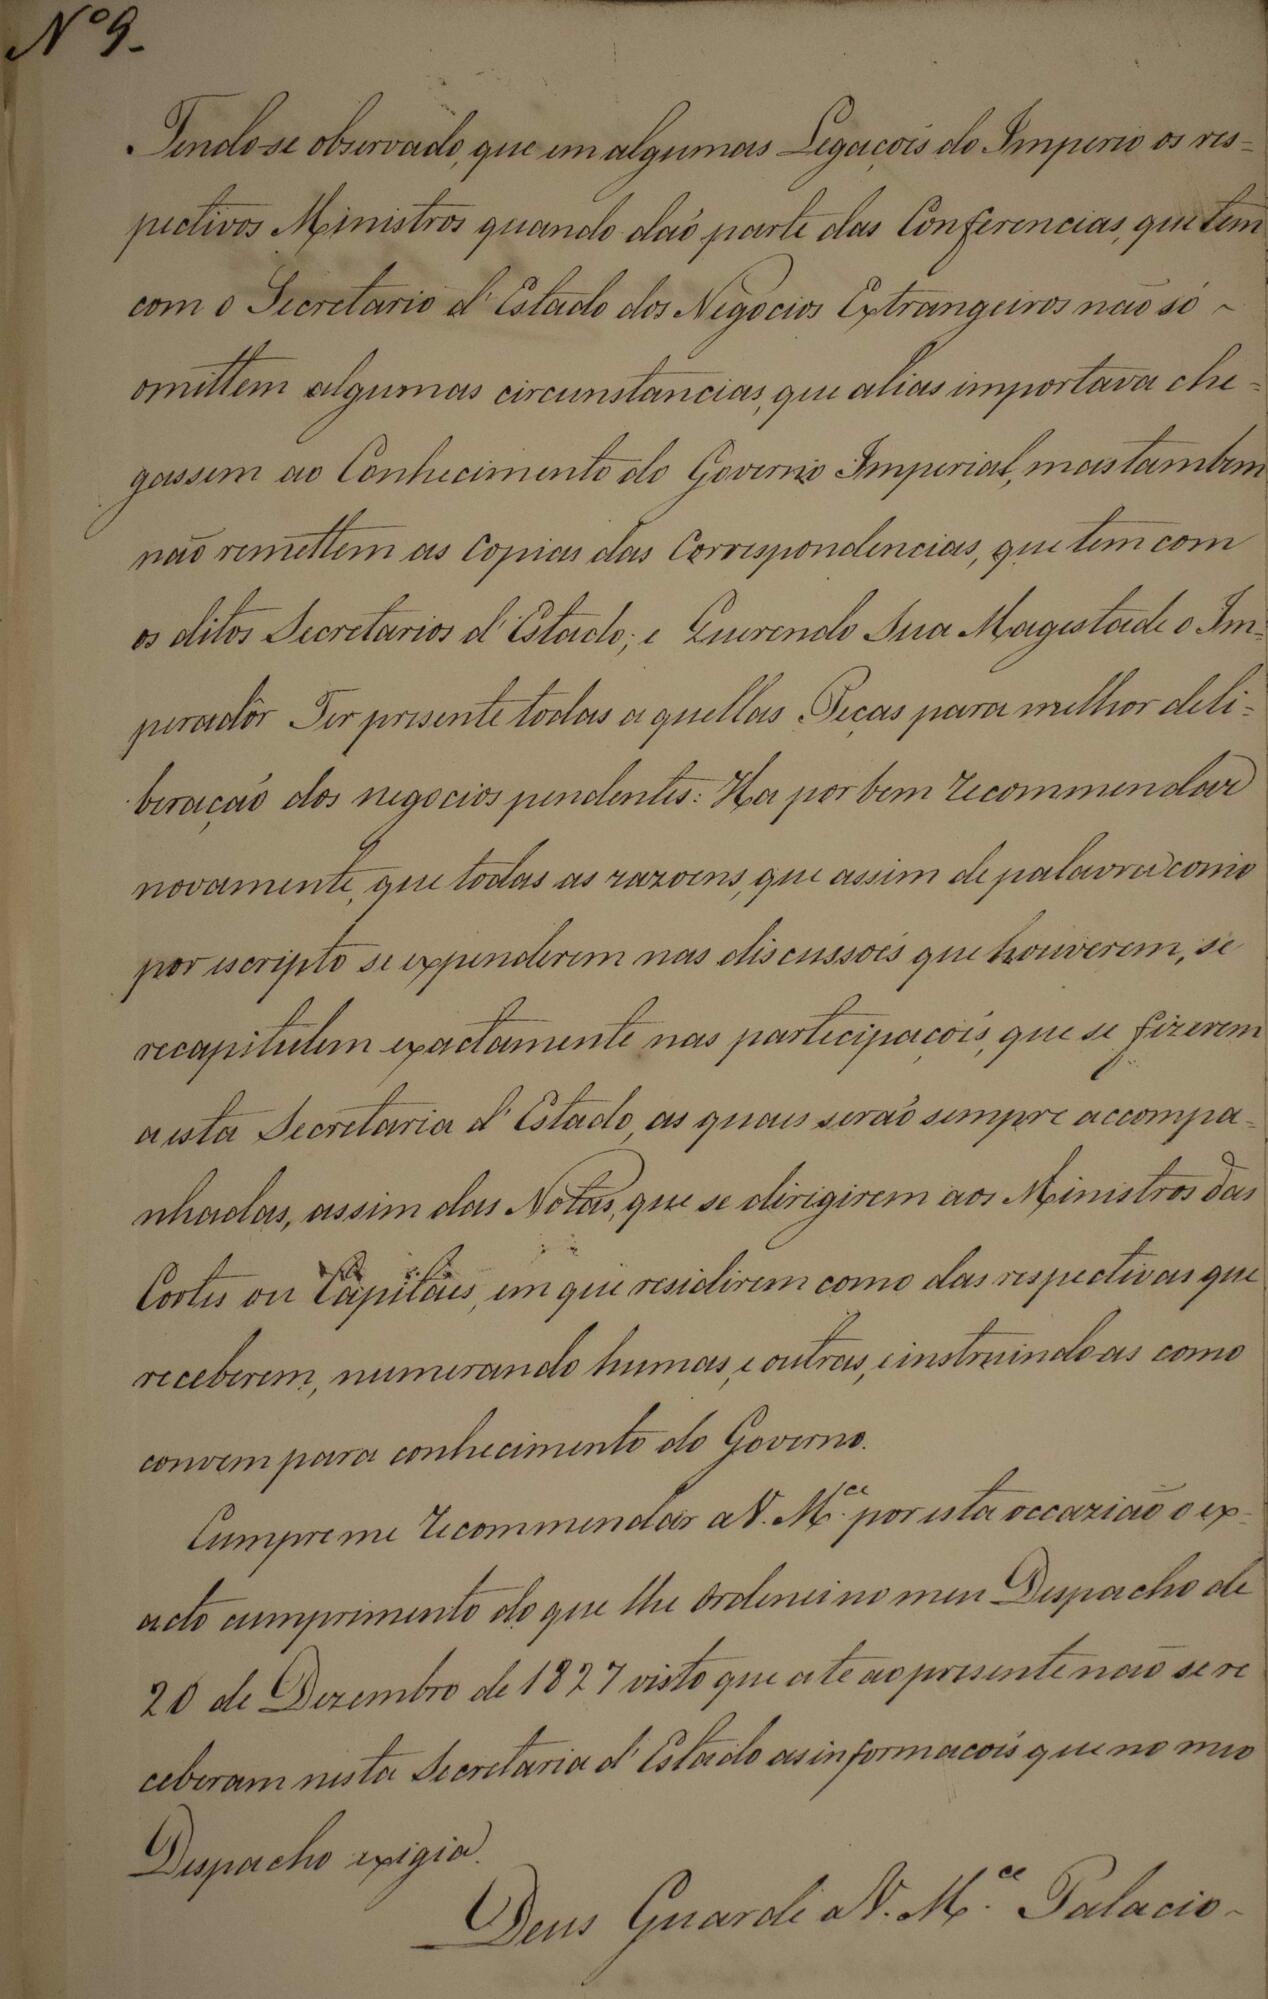 Nº 9.
Tendo-se observado, que em algumas Legaçoís do Imperio os res=
pectivos Ministros quando daó parte das Conferencias, que tem
com o Secretario d'Estado dos Negocios Extrangeiros naõ só ~
omittem algumas circunstancias, que alias importava che=
gassem ao Conhecimento do Governo Imperial, mas tambem
naõ remettem as Copias das Correspondencias, que tem com
os ditos Secretarios d'Estado; e Querendo Sua Magestade o Im=
peradôr Ter presente todas aquellas Peças para melhor deli=
beraçaó dos negocios pendentes: Ha por bem recommendar
novamente, que todas as razoens, que assim de palavra como
por escripto se expenderem nas discussoés que houverem, se
recapitulem exactamente nas participaçoís, que se fizerem
a esta Secretaria d'Estado, as quaes seraó sempre accompa=
nhadas, assim das Notas, que se dirigirem aos Ministros das
Cortes ou Capitáes, em que residirem como das respectivas que
receberem, numerando humas, e outras, e instruindo-as como
convem para conhecimento do Governo.
Cumpre me recommendar a V. M.ce por esta occaziaõ o ex=
acto cumprimento do que lhe Ordenei no meu Despacho de
20 de Dezembro de 1827 visto que ate ao presente naõ se re
ceberam nesta Secretaria d'Estado as informacoís que no meo
Despacho exigia.
Deus Guarde a V. M.ce Palacio ~